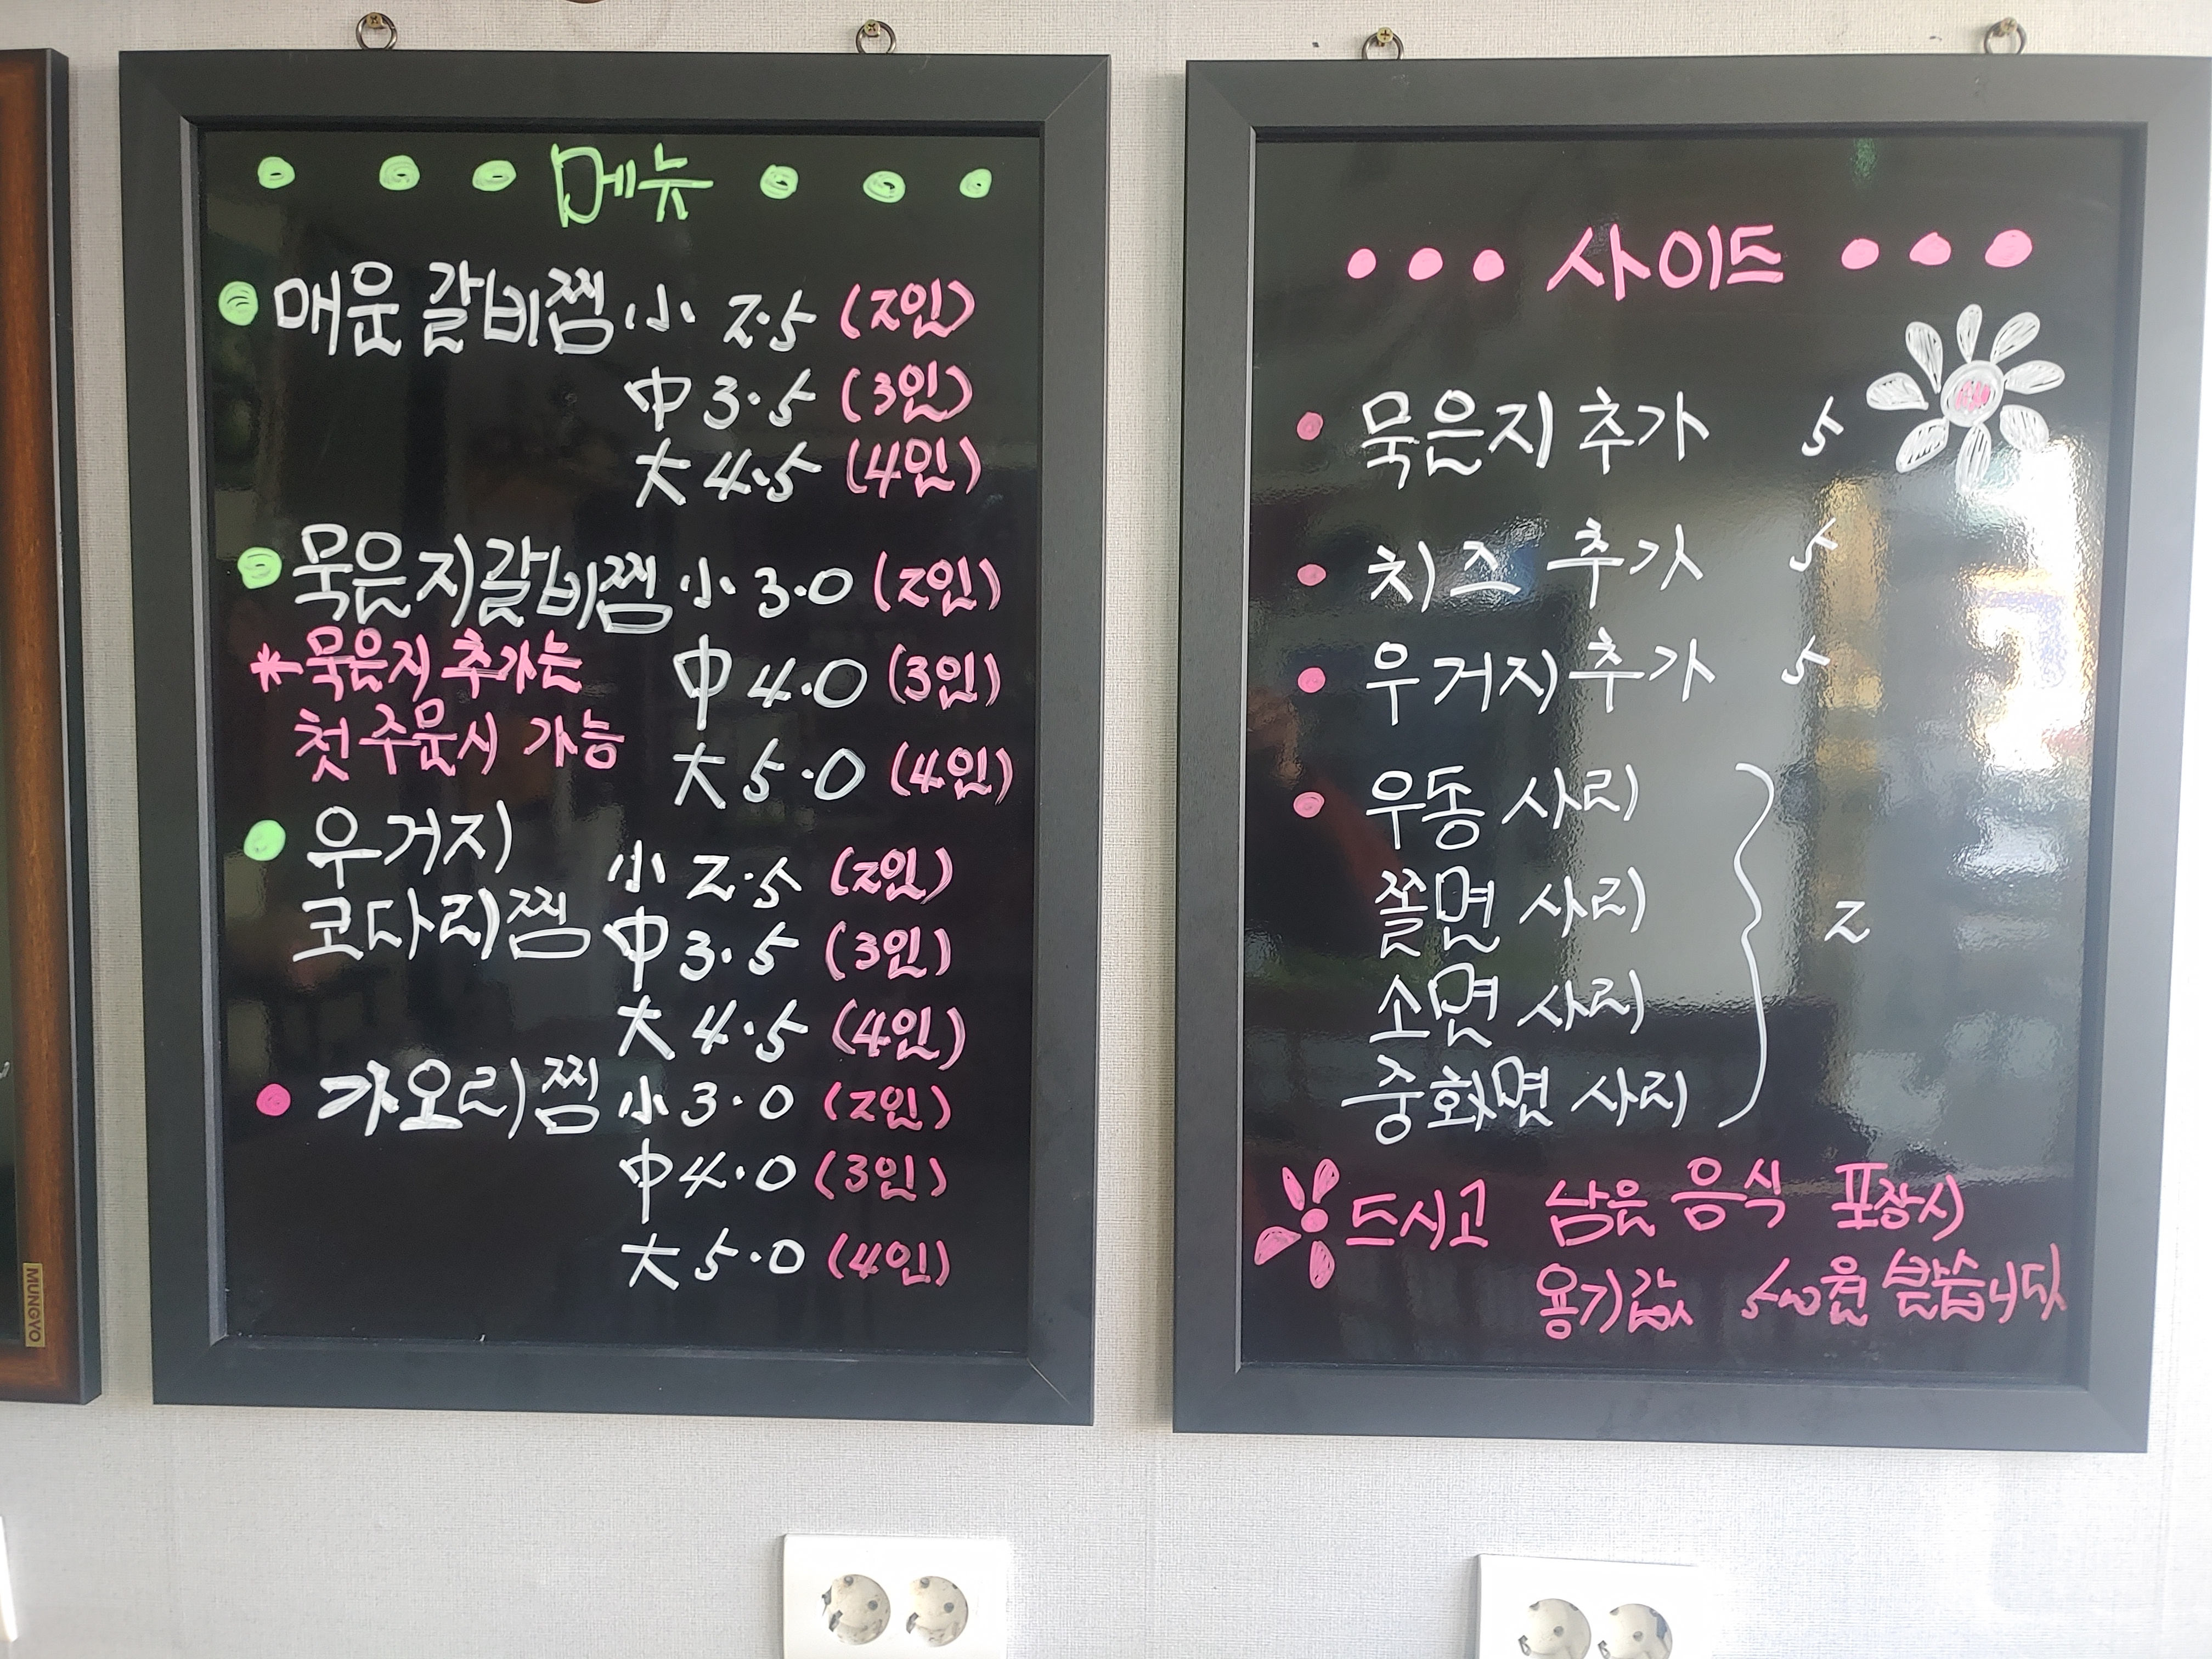 메뉴
매운 갈비찜 小 2.5 (2인)
中 3.5 (3인)
大 4.5 (4인)
묵은지갈비찜 小 3.0 (2인)
*묵은지 추가는 中 4.0 (3인)
첫 주문시 가능 大 5.0 (4인)
우거지
코다리찜 小 2.5 (2인)
中 3.5 (3인)
大 4.5 (4인)
가오리찜 小 3.0 (2인)
中 4.0 (3인)
大 5.0 (4인)
MUNGYO
사이드
묵은지 추가 5
치즈 추가 5
우거지 추가 5
우동 사리
쫄면 사리
소면 사리
중화면 사리
2
드시고 남은 음식 포장시
용기값 500원 받습니다